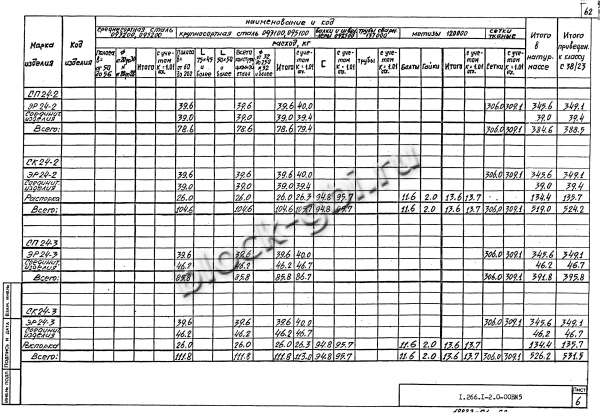 62
наименование и код
Марка изделия
Код изделия
среднесортная сталь 093200, 095200
крупносортная сталь 093100, 095100
балки и швеллеры 092500
трубы сварн 137000
метизы 120800
сетки тканые
Итого в натур. массе
Итого приведен. к классу С 38/23
расход, кг
Итого
Всего
С
трубы
Болты Гайки Итого
Сетки
СП 24-2
ЭР 24-2 39.6 39.6 39.6 40.0 306.0 309.1 345.6 349.1
Соединит. изделия 39.0 39.0 39.0 39.4 39.0 39.4
Всего: 78.6 78.6 78.6 79.4 306.0 309.1 384.6 388.5
СК 24-2
ЭР 24-2 39.6 39.6 39.6 40.0 306.0 309.1 345.6 349.1
Соединит. изделия 39.0 39.0 39.0 39.4 39.0 39.4
Распорка 26.0 26.0 26.0 26.3 94.8 95.7 11.6 2.0 13.6 13.7 134.4 135.7
Всего: 104.6 104.6 104.6 105.7 94.8 95.7 11.6 2.0 13.6 13.7 306.0 309.1 519.0 524.2
СП 24-3
ЭР 24-3 39.6 39.6 39.6 40.0 306.0 309.1 345.6 349.1
Соединит. изделия 46.2 46.2 46.2 46.7 46.2 46.7
Всего: 85.8 85.8 85.8 86.7 306.0 309.1 391.8 395.8
СК 24-3
ЭР 24-3 39.6 39.6 39.6 40.0 306.0 309.1 345.6 349.1
Соединит. изделия 46.2 46.2 46.2 46.7 46.2 46.7
Распорка 26.0 26.0 26.0 26.3 94.8 95.7 11.6 2.0 13.6 13.7 134.4 135.7
Всего: 111.8 111.8 111.8 113.0 94.8 95.7 11.6 2.0 13.6 13.7 306.0 309.1 526.2 531.5
block-gbi.ru
Взам. инв. №
Подпись и дата
Инв. № подл.
1.266.1-2.0-00ВМ5
Лист
6